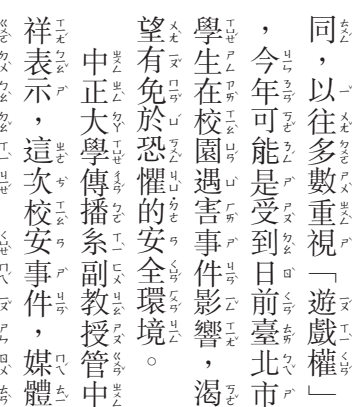 同，以往多數重視「遊戲權」
，今年可能是受到日前臺北市
學生在校園遇害事件影響，渴
望有免於恐懼的安全環境。
中正大學傳播系副教授管中
祥表示，這次校安事件，媒體